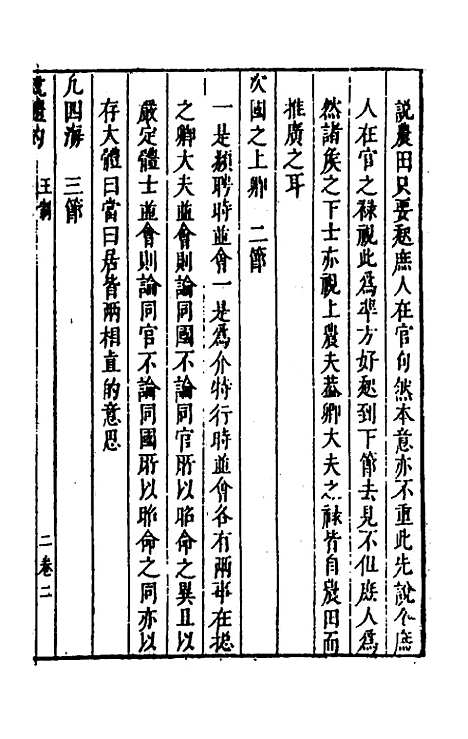 說農田只要起庶人在官句然本意亦不重此先說个庶
人在官之祿視此為準方好起到下節去見不但庶人為
然諸侯之下士亦視上農夫葢卿大夫之祿皆自農田而
推廣之耳
次國之上卿　二節
一是頫聘時並會一是為介特行時並會各有兩事在捴
之卿大夫並會則論同國不論同官所以昭命之異且以
嚴定體士並會則論同官不論同國所以昭命之同亦以
存大體曰當曰居皆兩相直的意思
凡四海　三節
王制
二卷二